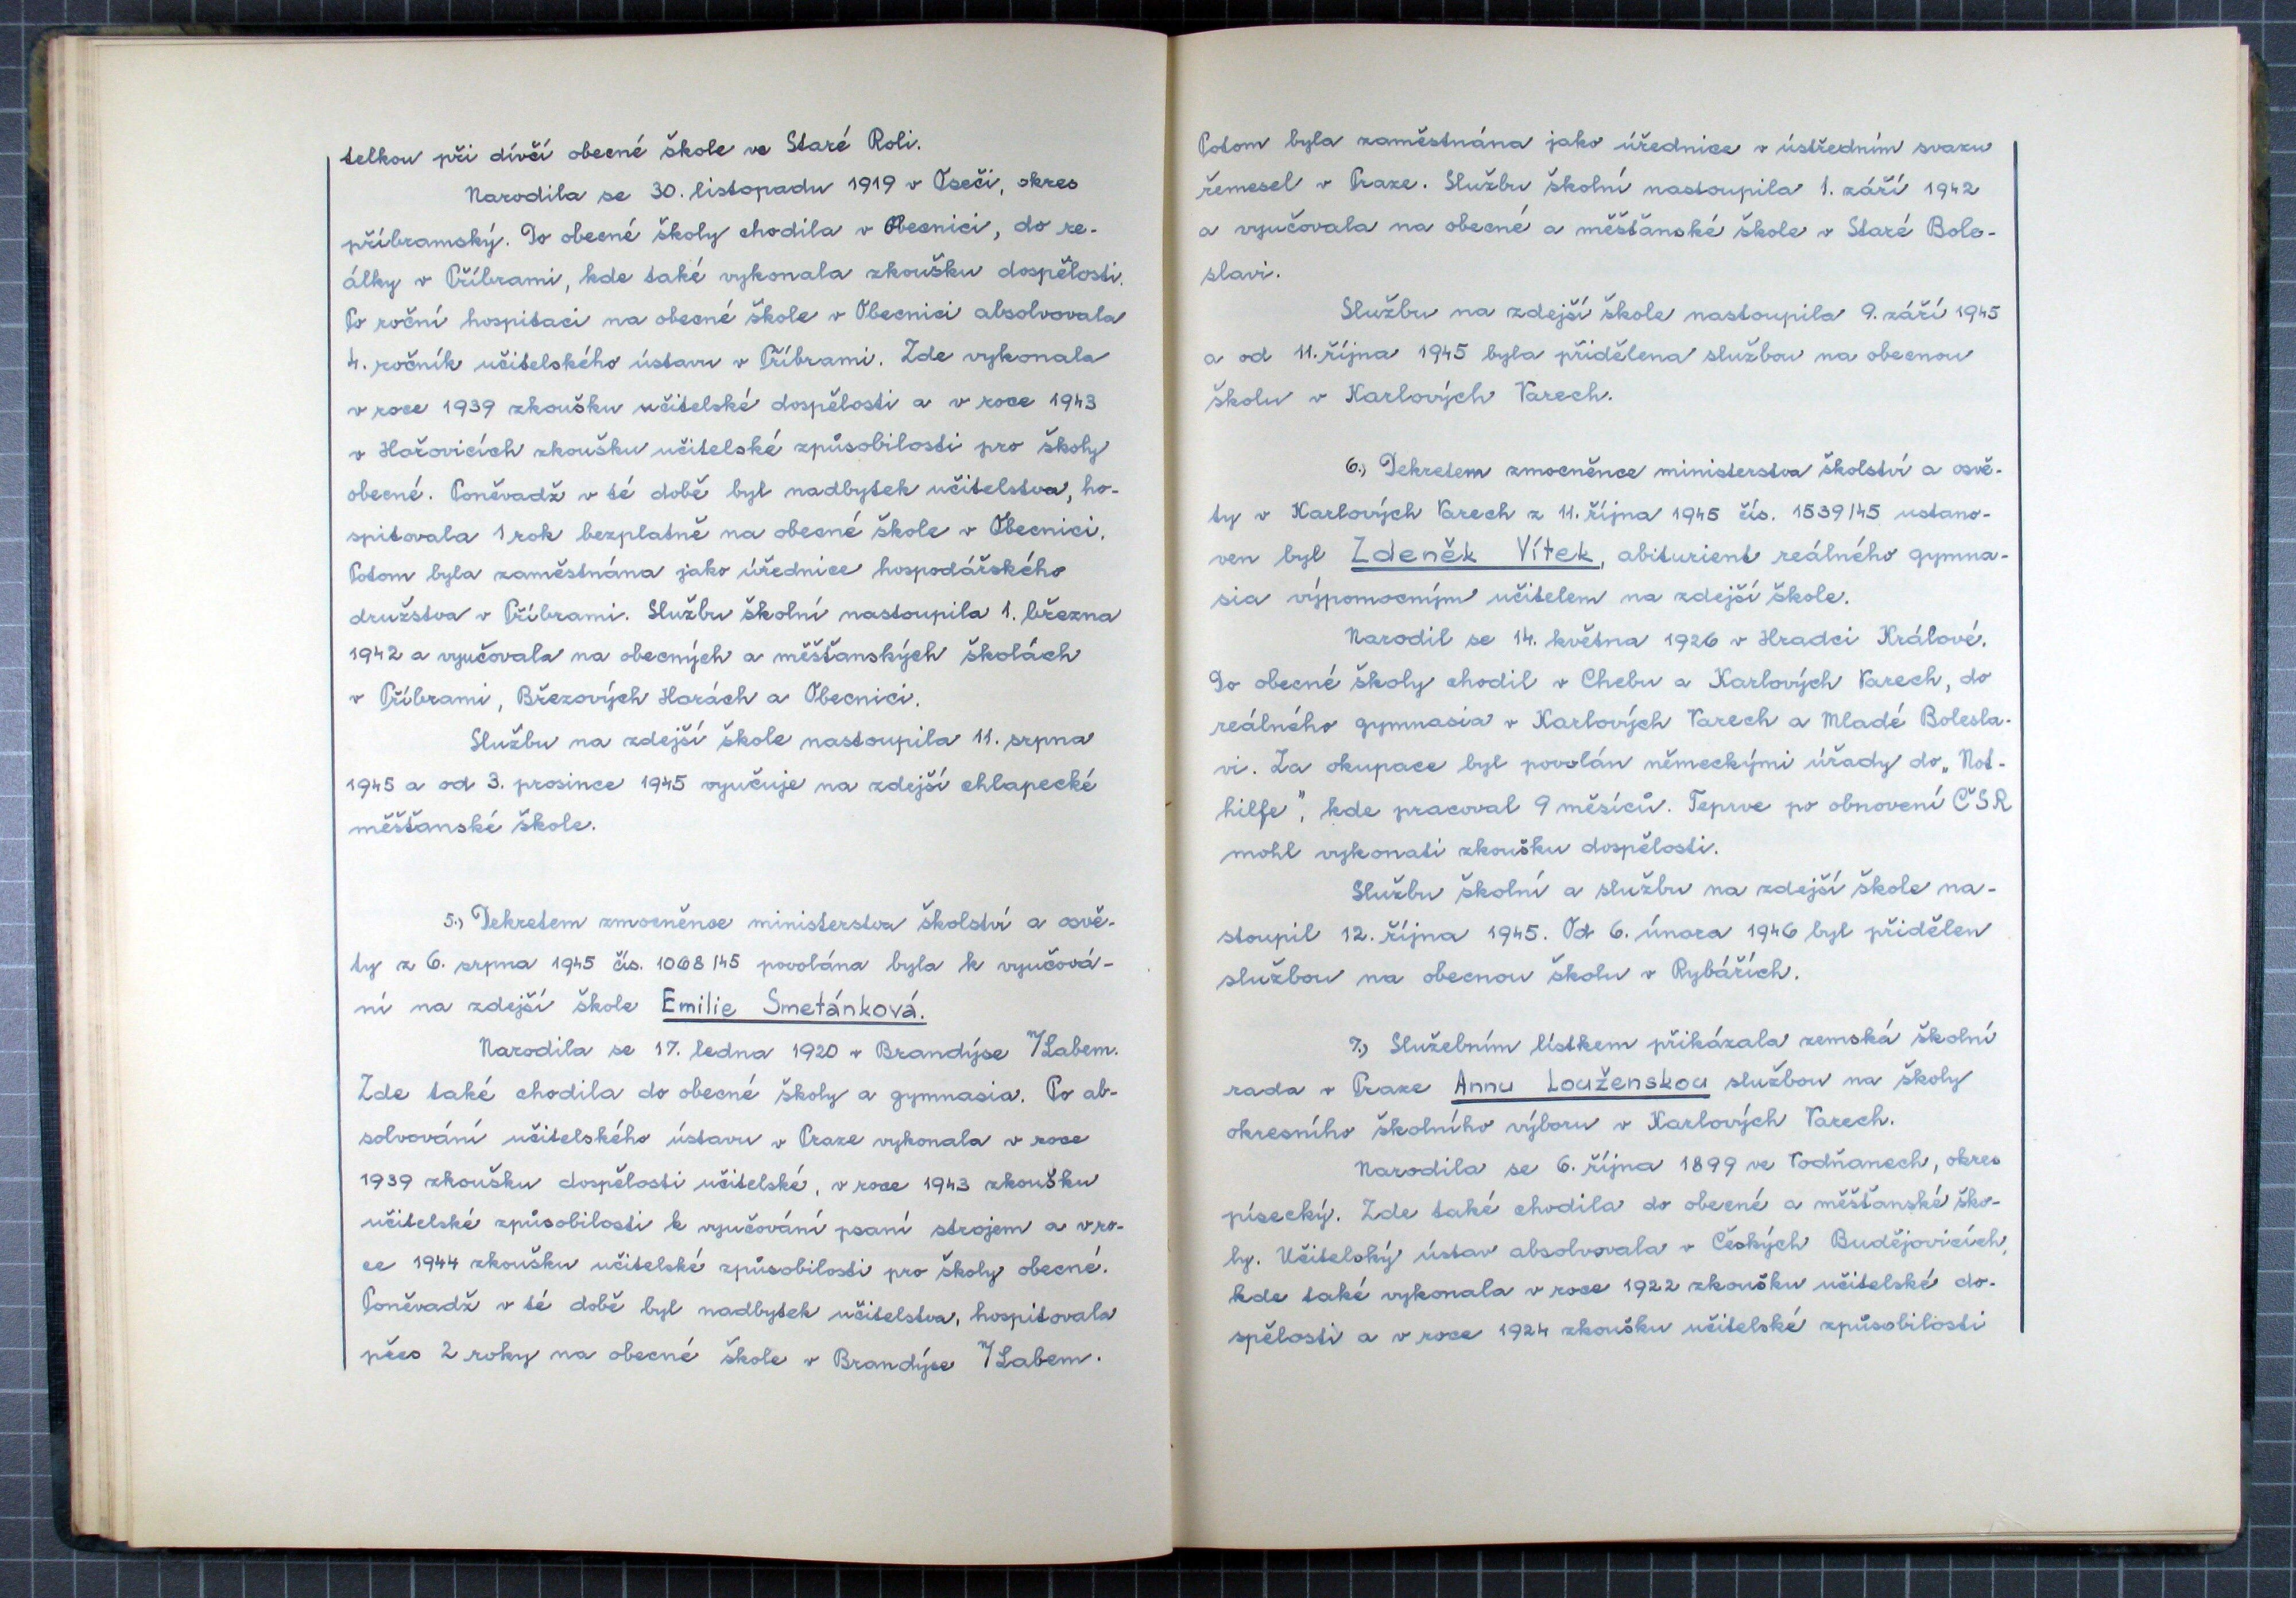 telkou při dívčí obecné škole ve Staré Roli.
Narodila se 30. listopadu 1919 v Oseči, okres
příbramský. Do obecné školy chodila v Obecnici, do re-
álky v Příbrami, kde také vykonala zkoušku dospělosti.
Po roční hospitaci na obecné škole v Obecnici absolvovala
4. ročník učitelského ústavu v Příbrami. Zde vykonala
v roce 1939 zkoušku učitelské dospělosti a v roce 1943
v Hořovicích zkoušku učitelské způsobilosti pro školy
obecné. Poněvadž v té době byl nadbytek učitelstva, ho-
spitovala 1 rok bezplatně na obecné škole v Obecnici.
Potom byla zaměstnána jako úřednice hospodářského
družstva v Příbrami. Službu školní nastoupila 1. března
1942 a vyučovala na obecných a měšťanských školách
v Příbrami, Březových Horách a Obecnici.
Službu na zdejší škole nastoupila 11. srpna
1945 a od 3. prosince 1945 vyučuje na zdejší chlapecké
měšťanské škole.
5.) Dekretem zmocněnce ministerstva školství a osvě-
ty z 6. srpna 1945 čís. 1068/45 povolána byla k vyučová-
ní na zdejší škole Emilie Smetánková.
Narodila se 17. ledna 1920 v Brandýse n/Labem.
Zde také chodila do obecné školy a gymnasia. Po ab-
solvování učitelského ústavu v Praze vykonala v roce
1939 zkoušku dospělosti učitelské, v roce 1943 zkoušku
učitelské způsobilosti k vyučování psaní strojem a v ro-
ce 1944 zkoušku učitelské způsobilosti pro školy obecné.
Poněvadž v té době byl nadbytek učitelstva, hospitovala
přes 2 roky na obecné škole v Brandýse n/Labem.
Potom byla zaměstnána jako úřednice v ústředním svazu
řemesel v Praze. Službu školní nastoupila 1. září 1942
a vyučovala na obecné a měšťanské škole v Staré Bole-
slavi.
Službu na zdejší škole nastoupila 9. září 1945
a od 11. října 1945 byla přidělena službou na obecnou
školu v Karlových Varech.
6.) Dekretem zmocněnce ministerstva školství a osvě-
ty v Karlových Varech z 11. října 1945 čís. 1539/45 ustano-
ven byl Zdeněk Vítek, abiturient reálného gymna-
sia výpomocným učitelem na zdejší škole.
Narodil se 14. května 1926 v Hradci Králové.
Do obecné školy chodil v Chebu a Karlových Varech, do
reálného gymnasia v Karlových Varech a Mladé Bolesla-
vi. Za okupace byl povolán německými úřady do „Not-
hilfe", kde pracoval 9 měsíců. Teprve po obnovení ČSR
mohl vykonati zkoušku dospělosti.
Službu školní a službu na zdejší škole na-
stoupil 12. října 1945. Od 6. února 1946 byl přidělen
službou na obecnou školu v Rybářích.
7.) Služebním lístkem přikázala zemská školní
rada v Praze Annu Louženskou službou na školy
okresního školního výboru v Karlových Varech.
Narodila se 6. října 1899 ve Vodňanech, okres
písecký. Zde také chodila do obecné a měšťanské ško-
ly. Učitelský ústav absolvovala v Českých Budějovicích,
kde také vykonala v roce 1922 zkoušku učitelské do-
spělosti a v roce 1924 zkoušku učitelské způsobilosti